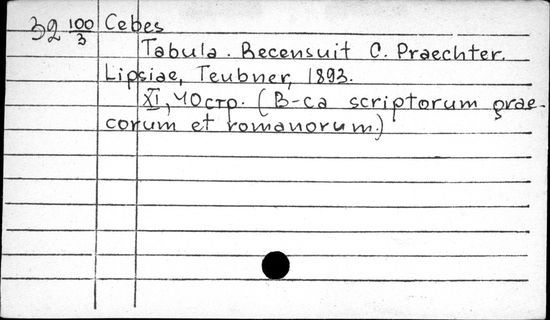 32 100/3 Cebes
Tabula. Recensuit C. Praechter.
Lipsiae, Teubner, 1893.
XI, 40 стр. (B-ca scriptorum grae-
corum et romanorum.)